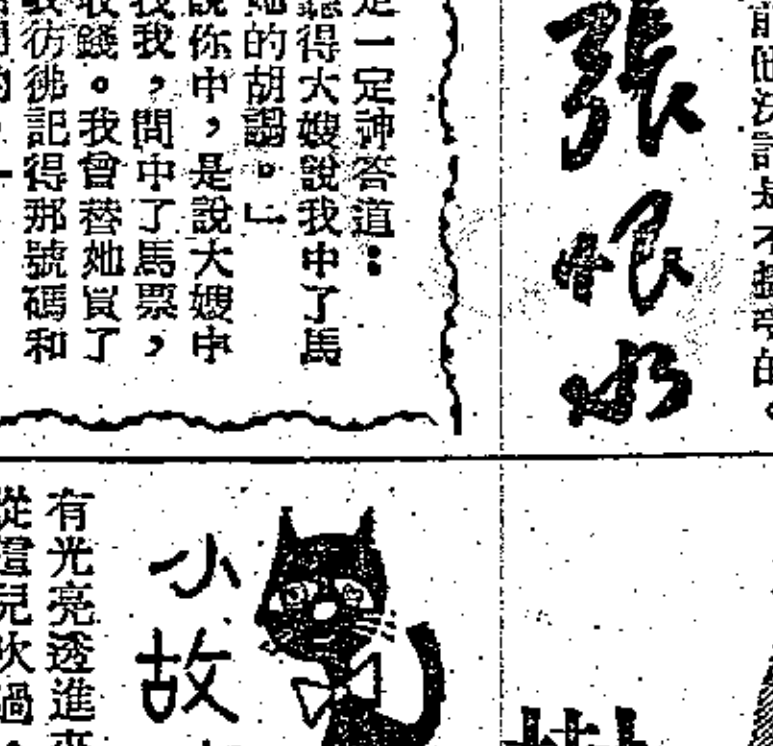 前他決計是不擅
張恨水
是一定神答道：
聽得大嫂說我中了馬
她的胡謅。」
說你中，是說大嫂中
找我，問中了馬票，
收錢。我曾替她買了
我彷彿記得那號碼和
小故
有光亮透進來
從這兒吹過